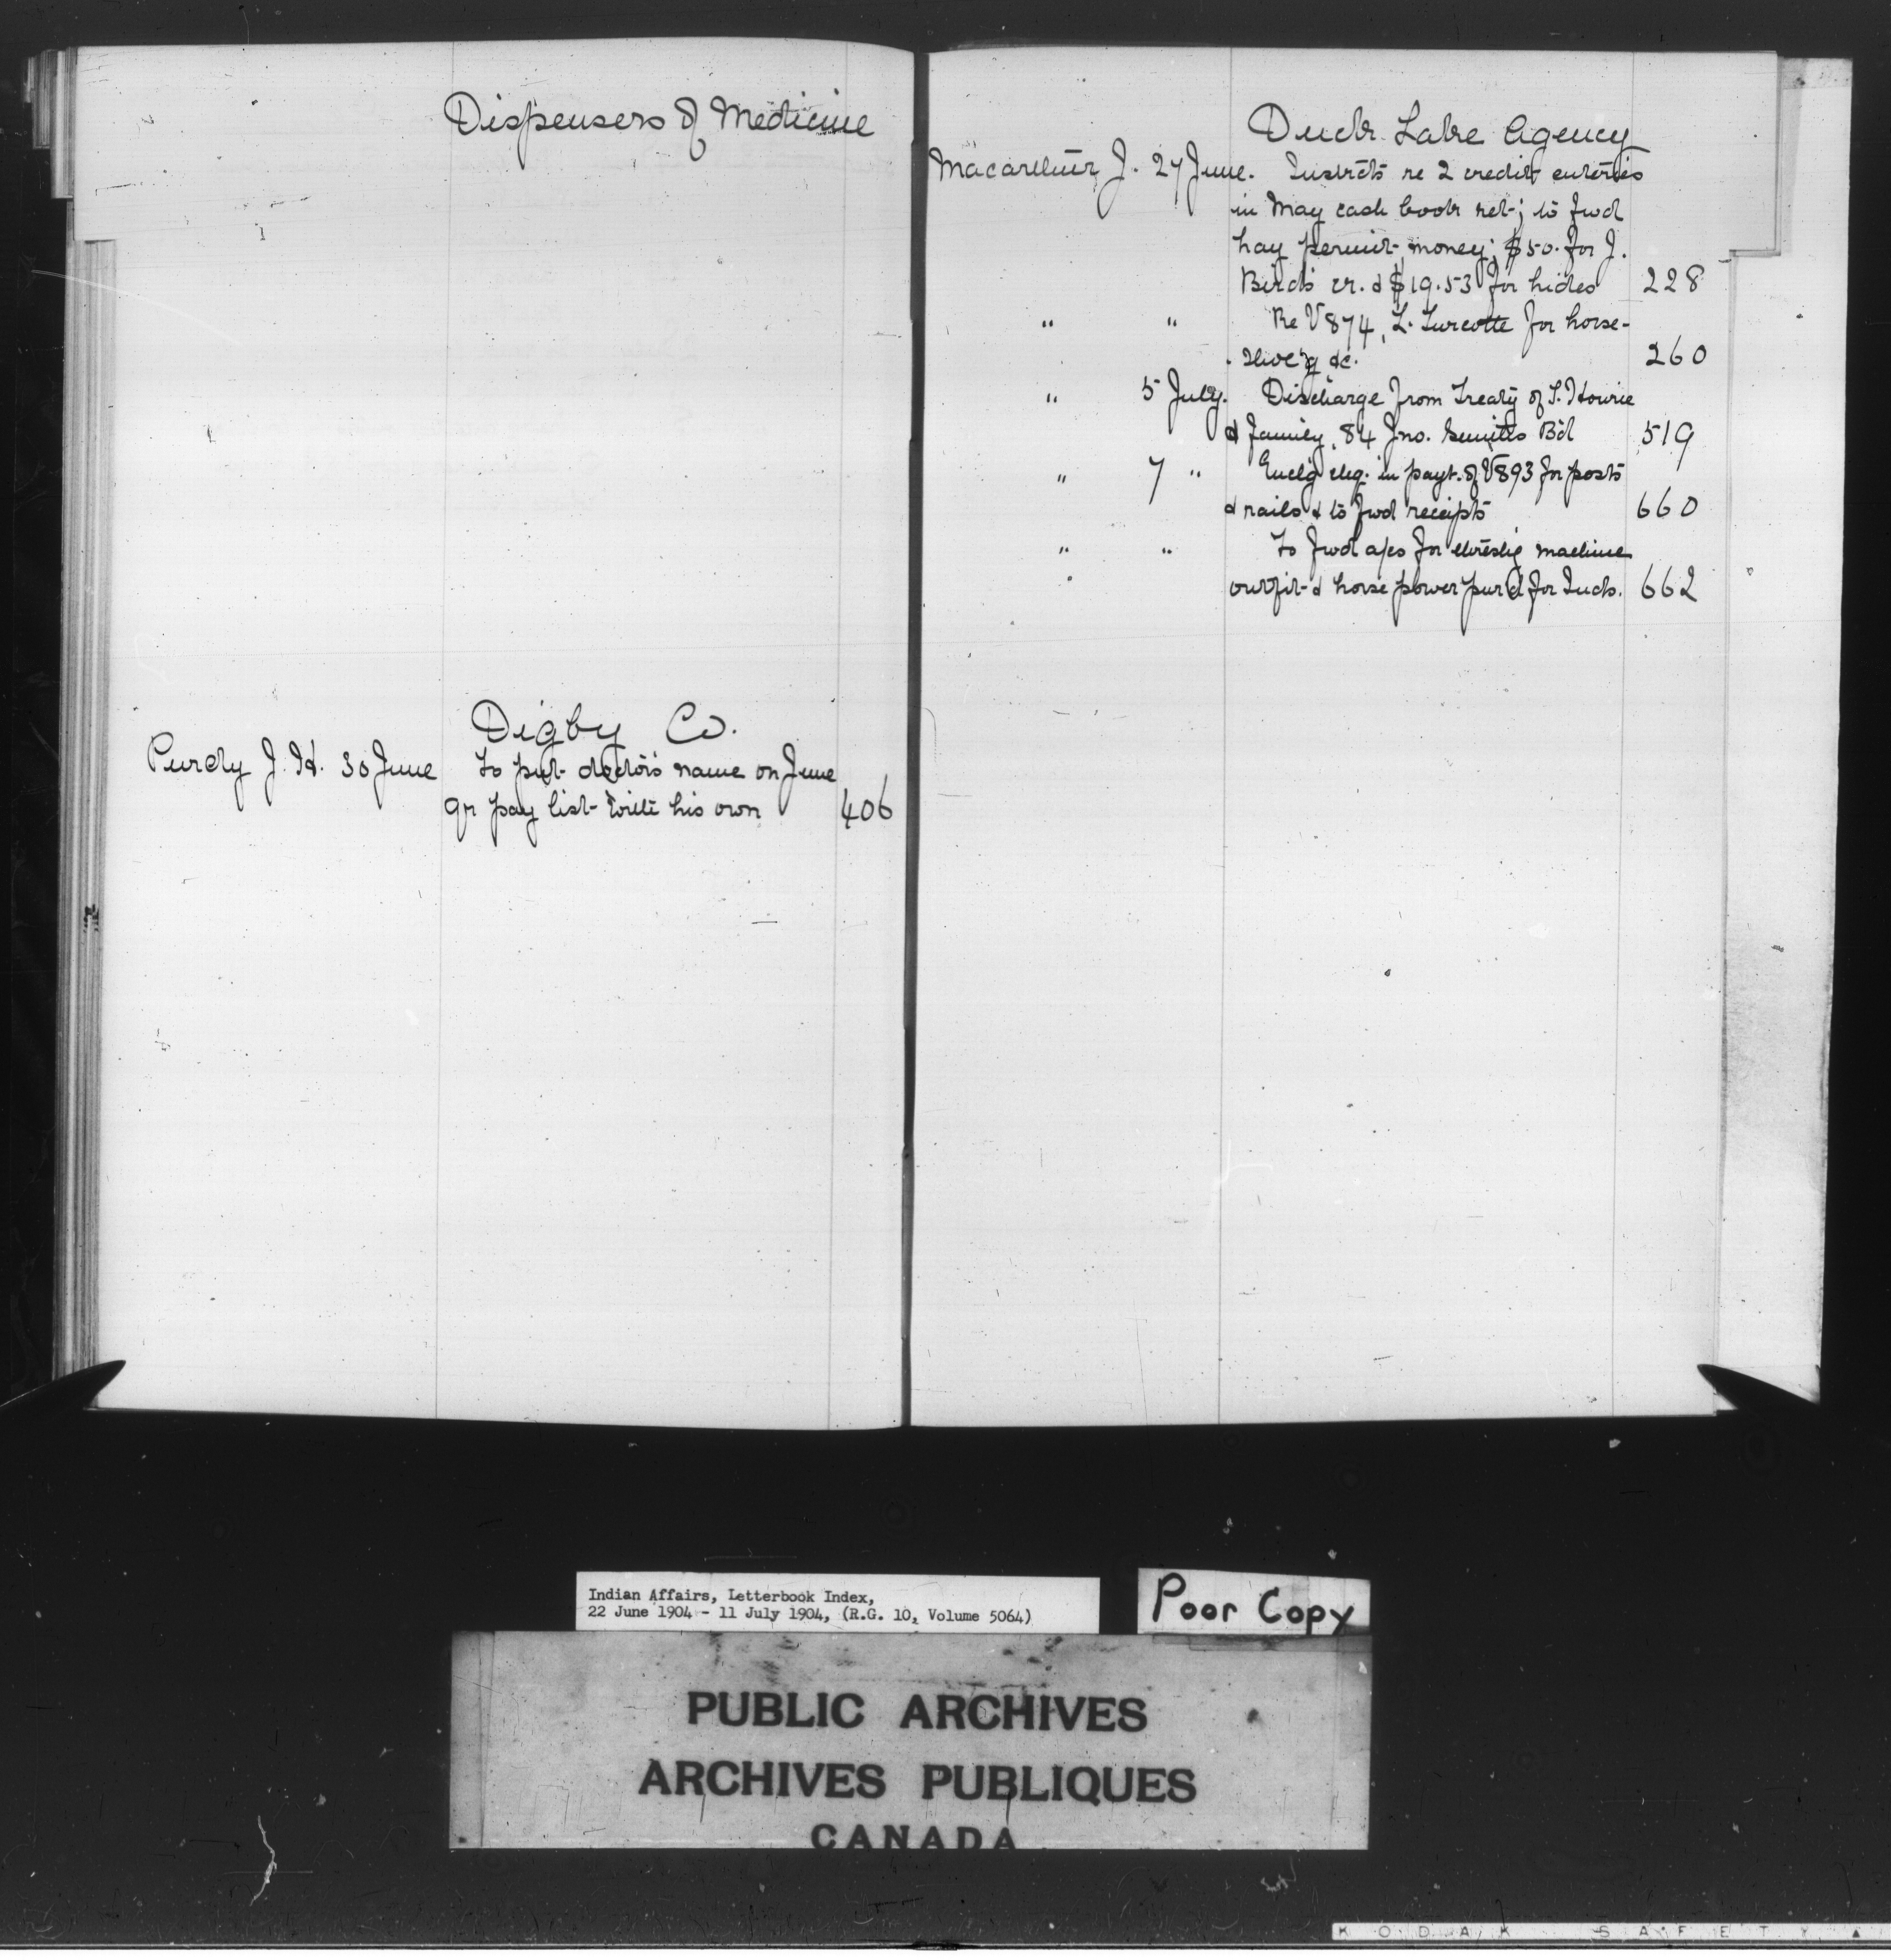 Dispensers of Medicine
Digby Co.
Purdy J. H. 30 June To put doctor's name on June
qr pay list with his own 406
Duck Lake Agency
Macarthur J. 27 June. Instrcts re 2 credit enteries
in May cash book ret; to fwd
hay permit money; $50. for J.
Bird's cr. & $19.53 for hides 228
" " Re V874, L. Turcotte for horse-
shoe'g &c. 260
" 5 July. Discharge from Treaty of S. Howrie
& family, 84 Jno. Smiths Bd 519
" 7 " Encl'g chq. in payt. of V893 for posts
& rails & to fwd receipts 660
" " To fwd a/cs for threshg machine
outfit & horse power purd for Inds. 662
Indian Affairs, Letterbook Index,
22 June 1904 - 11 July 1904, (R.G. 10, Volume 5064)
Poor Copy
PUBLIC ARCHIVES
ARCHIVES PUBLIQUES
CANADA
KODAK SAFETY